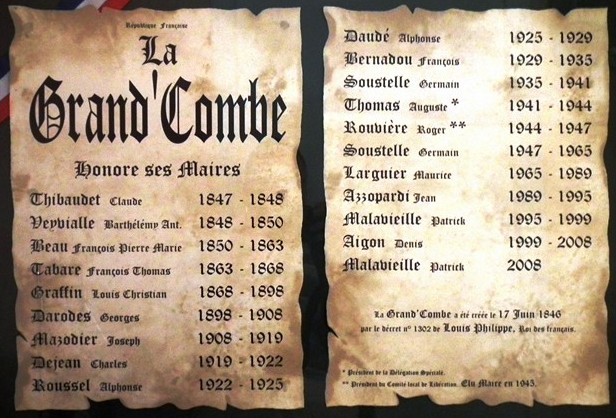 République Française
La
Grand'Combe
Honore ses Maires
Thibaudet Claude 1847 - 1848
Veyvialle Barthélémy Ant. 1848 - 1850
Beau François Pierre Marie 1850 - 1863
Tabare François Thomas 1863 - 1868
Graffin Louis Christian 1868 - 1898
Darodes Georges 1898 - 1908
Mazodier Joseph 1908 - 1919
Dejean Charles 1919 - 1922
Roussel Alphonse 1922 - 1925
Daudé Alphonse 1925 - 1929
Bernadou François 1929 - 1935
Soustelle Germain 1935 - 1941
Thomas Auguste * 1941 - 1944
Rouvière Roger ** 1944 - 1947
Soustelle Germain 1947 - 1965
Larguier Maurice 1965 - 1989
Azzopardi Jean 1989 - 1995
Malavieille Patrick 1995 - 1999
Aigon Denis 1999 - 2008
Malavieille Patrick 2008
La Grand'Combe a été créée le 17 Juin 1846
par le décret n° 1302 de Louis Philippe, Roi des français.
* Président de la Délégation Spéciale.
** Président du Comité local de Libération. Elu Maire en 1945.